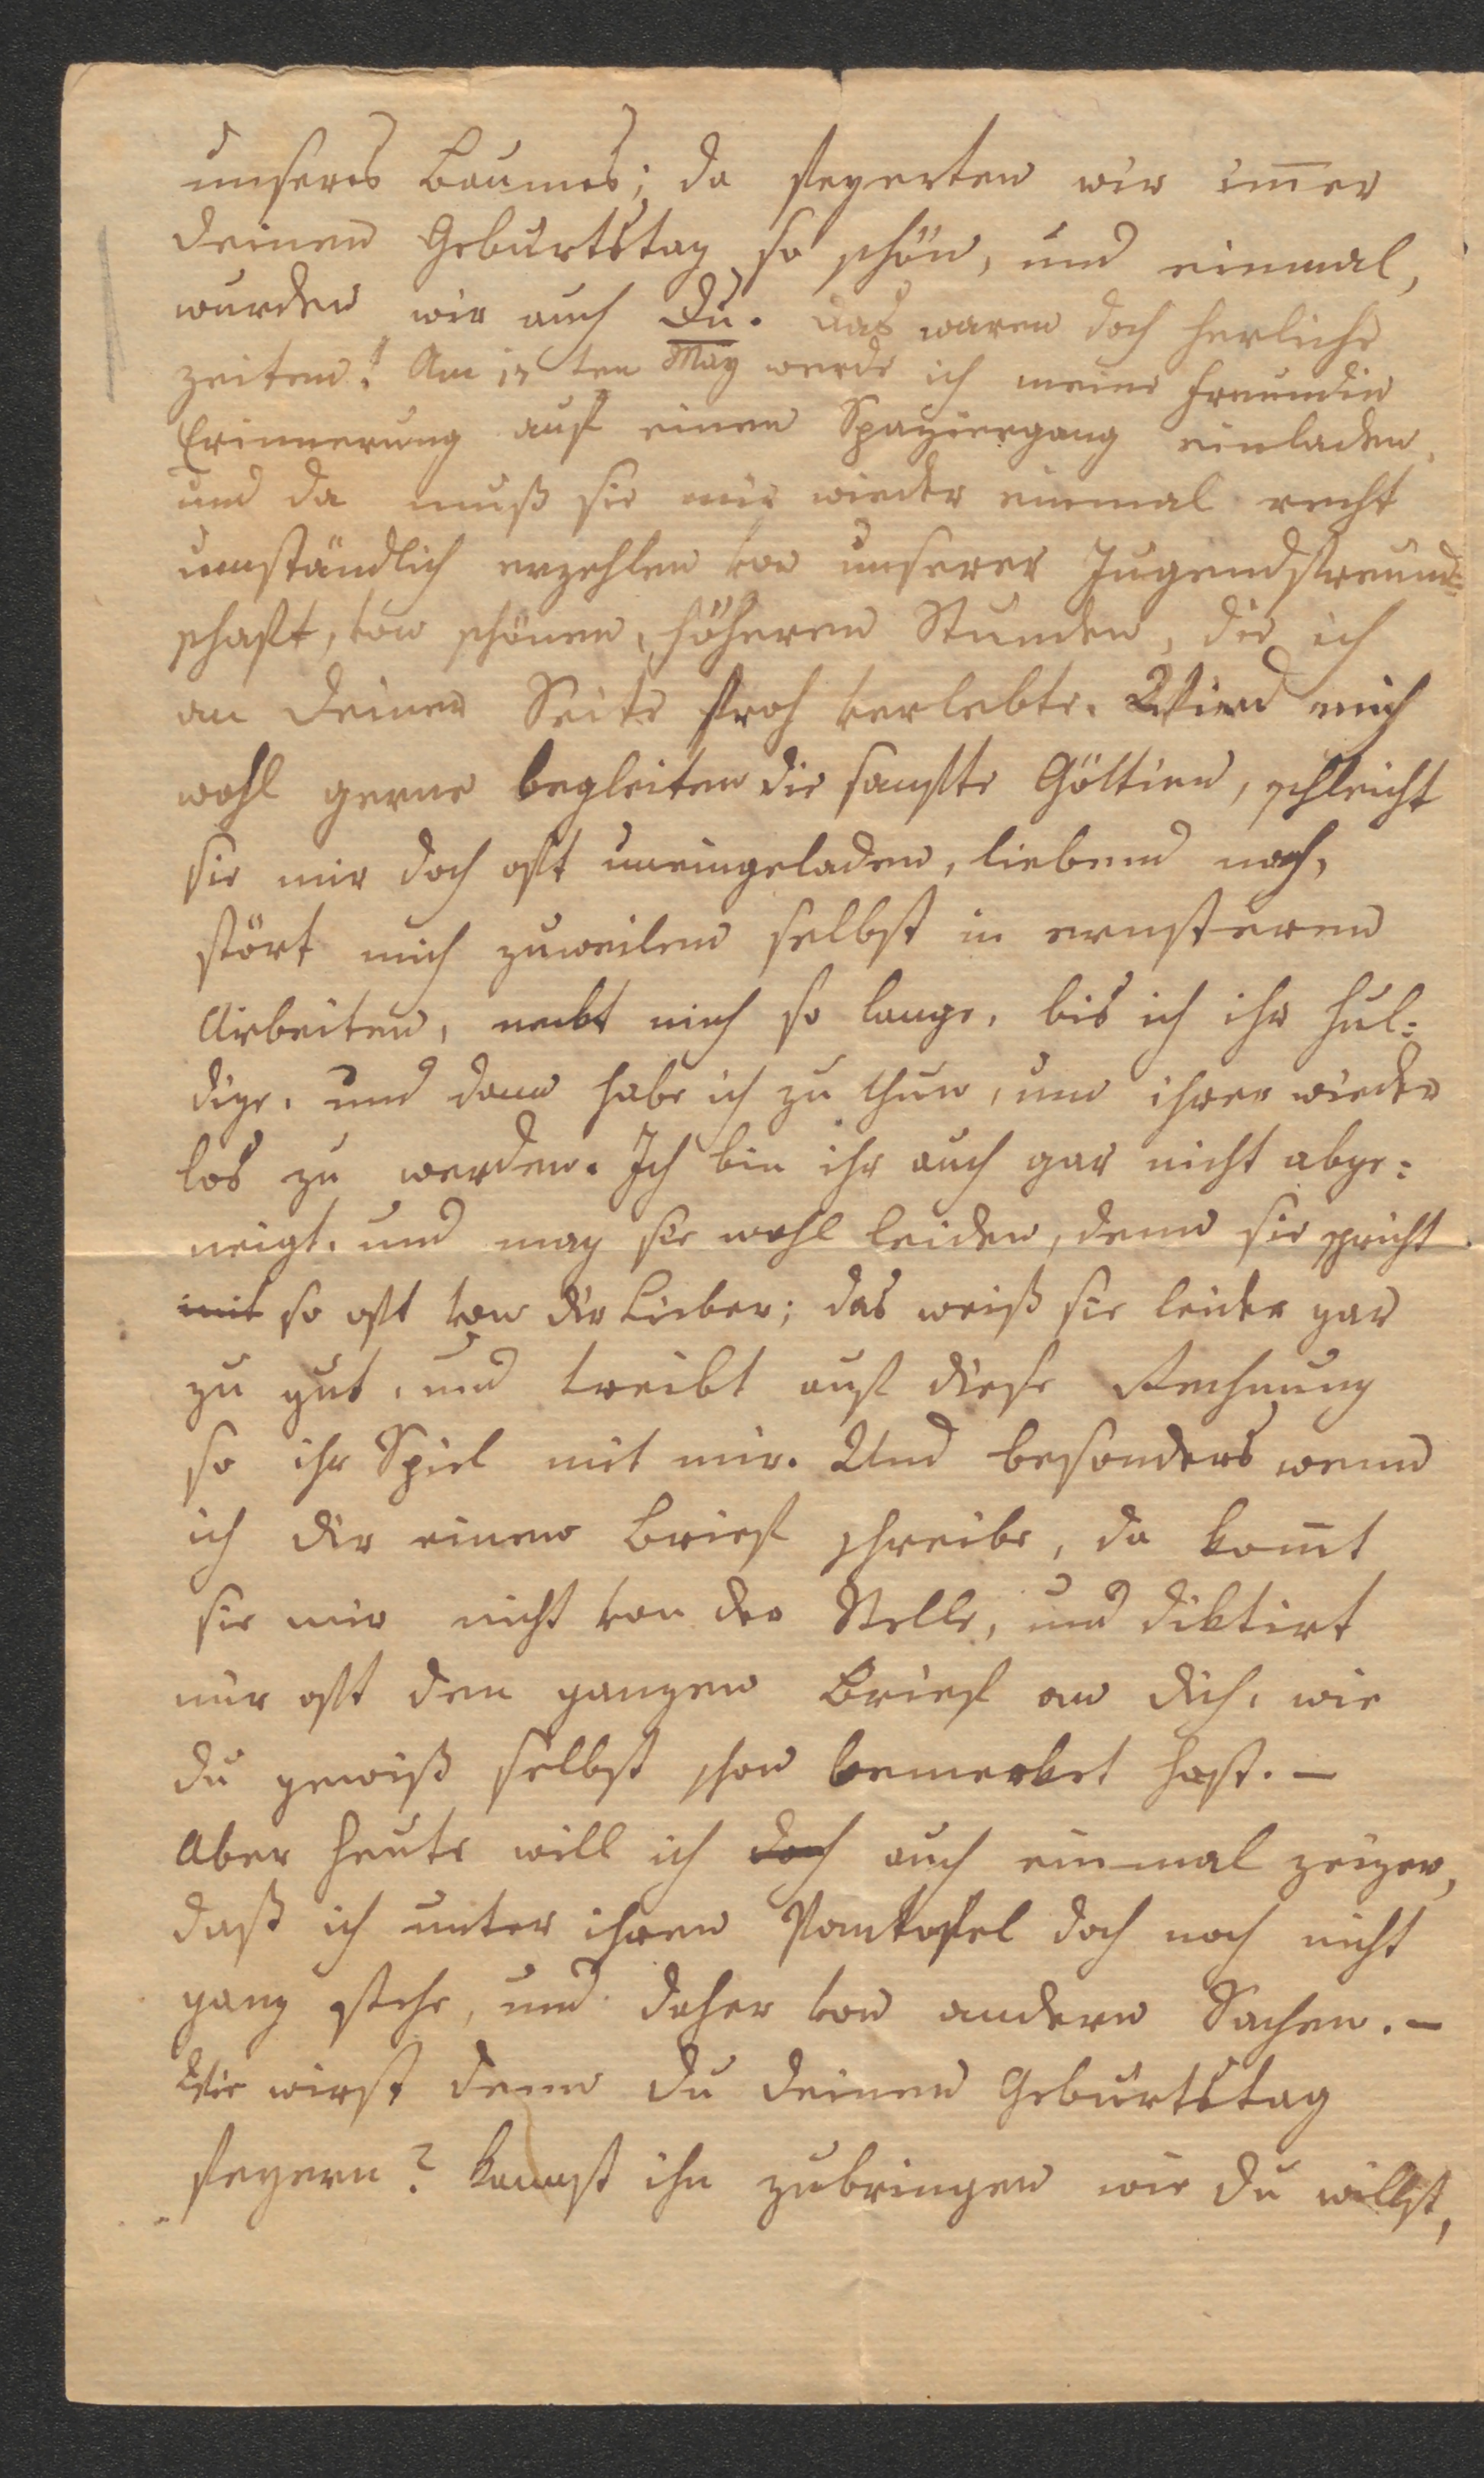 unseres Baumes; da feyerten wir im̅er
deinen Geburtstag so schön, und einmal,
wurden wir auch Du. Das waren doch herliche
zeiten! Am 17ten May werde ich meine Freundin
Erinnerung auf einen Spaziergang einladen,
und da muß sie mir wieder einmal recht
umständlich erzehlen von unserer Jugendfreund=
schaft, von schönen, höheren Stunden, die ich
an deiner Seite froh verlebte. Wird mich
wohl gerne begleiten die sanfte Göttien, schleicht
sie mir doch oft uneingeladen, liebend nach,
stört mich zuweilen selbst in ernsteren
Arbeiten, nekt mich so lange, bis ich ihr hul=
dige, und dann habe ich zu thun, um ihrer wieder
los zu werden. Ich bin ihr auch gar nicht abge=
neigt, und mag sie wohl leiden, denn sie spricht
mit so oft von dir Lieber; das weiß sie leider gar
zu gut, und treibt auf diese Rechnung
so ihr Spiel mit mir. Und besonders wenn
ich dir einen Brief schreibe, da kom̅t
sie mir nicht von der Stelle, und diktirt
mir oft den ganzen Brief an dich, wie
du gewiß selbst schon bemerket hast. –
Aber heute will ich doch auch einmal zeigen,
daß ich unter ihren Pantofel doch noch nicht
ganz stehe, und daher von andern Sachen. –
Wie wirst denn du deinen Geburtstag
feyern? kannst ihn zubringen wie du willst,